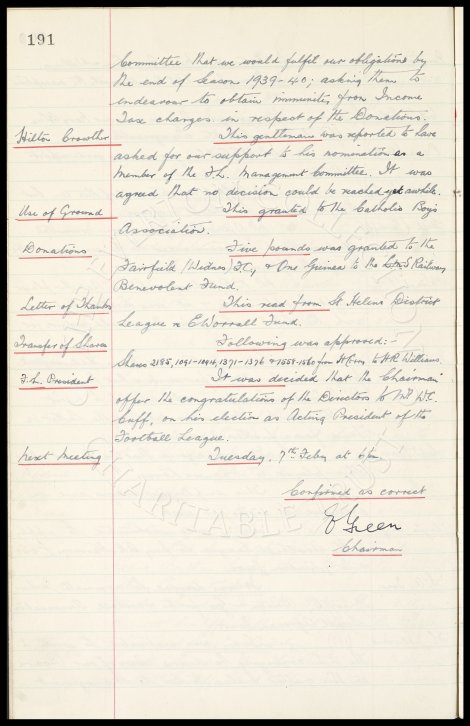 191
Committee that we would fulfel our obligations by
the end of Season 1939-40; asking them to
endeavour to obtain immunities from Income
Tax charges in respect of the Donations.
Hilton Crowther This gentleman was reported to have
asked for our support to his nomination as a
Member of the F.L. Management Committee. It was
agreed that no decision could be reached yet awhile.
Use of Ground This granted to the Catholic Boys
Association.
Donations Five pounds was granted to the
Fairfield (Widnes) F.C., & One Guinea to the L.M.S Railway
Benevolent Fund.
Letter of Thanks This read from St Helens District
League re E Worrall Fund.
Transfer of Shares Following was approved:-
Shares 2195, 1091-1094, 1371-1376 & 1558-1560 from to H.R. Williams.
F.L. President It was decided that the Chairman
offer the congratulations of the Directors to Mr W.C.
Cuff, on his election as Acting President of the
Football League.
Next Meeting Tuesday, 7th Feby at 6pm.
Confirmed as correct
E Green
Chairman
CHARITABLE